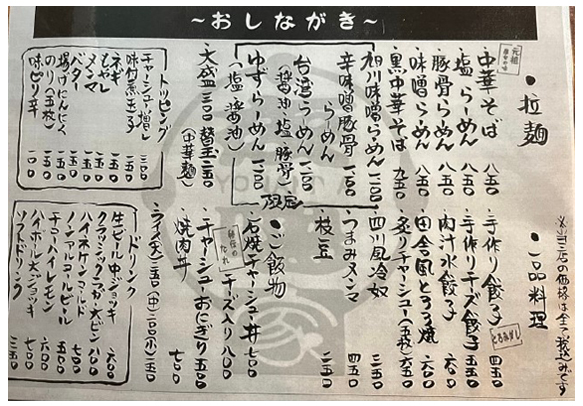 ～おしながき～
※当店の価格は全て税込みです
・拉麺
元祖
中華そば 八五〇
塩らーめん 八五〇
豚骨らーめん 八五〇
味噌らーめん 八五〇
黒中華そば 九五〇
旭川味噌らーめん 一二〇〇
辛味噌豚骨らーめん 一二〇〇
台湾らーめん 一二〇〇
(醤油 塩 豚骨)
ゆずらーめん 一一〇〇
(塩 醤油)
大盛 三〇〇 替玉 二五〇
(中華麺)
トッピング
チャーシュー増し 三〇〇
味付煮玉子 一五〇
ネギ 一五〇
メンマ 一五〇
もやし 一五〇
バター 一五〇
揚げにんにく 一五〇
のり(五枚) 一五〇
味ピリ辛 一〇〇
・一品料理
手作り餃子 四五〇
手作りチーズ餃子 五五〇
とろみめし
肉汁水餃子 六〇〇
田舎風とろろ焼 六〇〇
炙りチャーシュー(五枚) 六五〇
四川風冷奴 三五〇
つまみメンマ 四五〇
枝豆 二五〇
・ご飯物
石焼チャーシュー丼 七〇〇
チーズ入り 八〇〇
秘伝のたれ
チャーシューおにぎり 三五〇
焼肉丼 七〇〇
ライス(大)二五〇 (中)二〇〇 (小)一五〇
ドリンク
生ビール中ジョッキ 六〇〇
クラシックラガー大ビン 八〇〇
ハイネケンコールド 七〇〇
ノンアルコールビール 五〇〇
チューハイレモン 六〇〇
ハイボール大ジョッキ 七〇〇
ソフトドリンク 三五〇